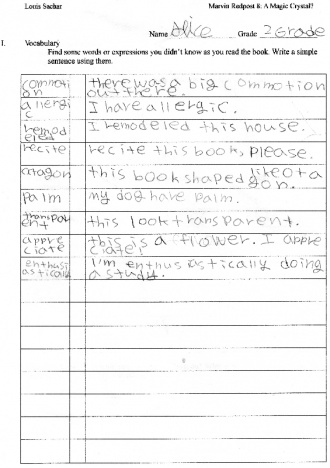 Louis Sachar Marvin Redpost 8: A Magic Crystal?
Name Alice Grade 2 Grade
I. Vocabulary
Find some words or expressions you didn't know as you read the book. Write a simple
sentence using them.
commoti there was a big commotion
on out there.
allergi I have allergic.
c
remod I remodeled this house.
eled
recite recite this book, please.
octagon this book shaped like octa
gon.
palm my dog have palm.
transpar this look transparent.
ent
appre this is a flower. I appre
ciate ciate!
enthusi I'm enthusiastically doing
astically a study.